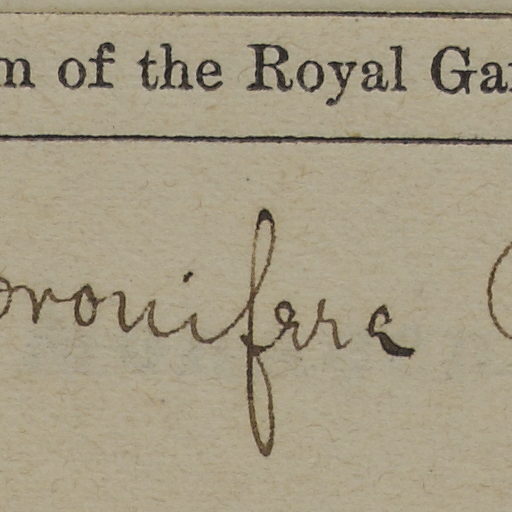 m of the Royal Gar
oronifera C